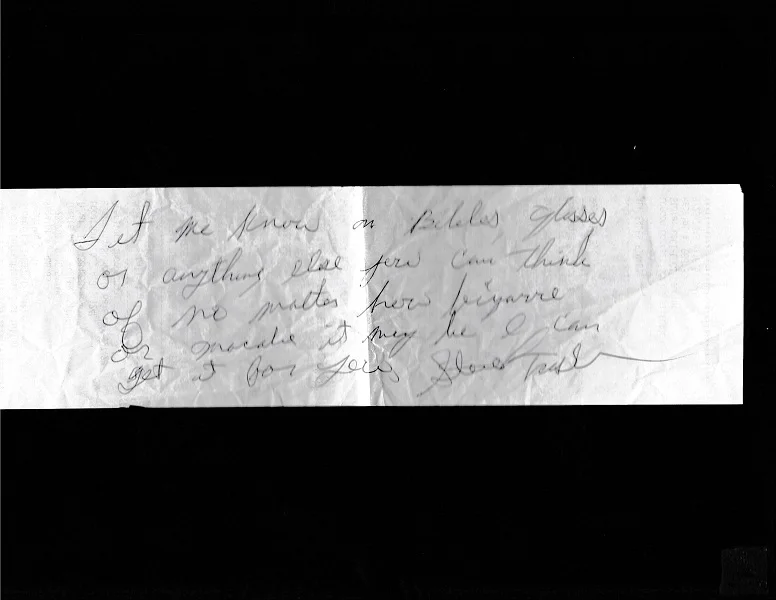 Let me know on Bibles glasses
or anything else you can think
of no matter how bizarre
or macabe it may be I can
get it for you